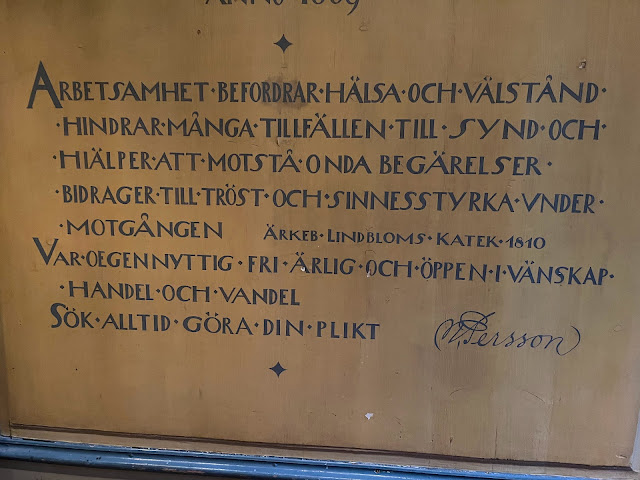 ANNO 1669
ARBETSAMHET·BEFORDRAR·HÄLSA·OCH·VÄLSTÅND·
·HINDRAR·MÅNGA·TILLFÄLLEN·TILL·SYND·OCH·
·HIÄLPER·ATT·MOTSTÅ·ONDA BEGÄRELSER·
·BIDRAGER·TILL·TRÖST·OCH·SINNESSTYRKA·VNDER·
·MOTGÅNGEN ÄRKEB·LINDBLOMS·KATEK·1810
VAR·OEGENNYTTIG·FRI·ÄRLIG·OCH·ÖPPEN·I·VÄNSKAP·
·HANDEL·OCH·VANDEL
SÖK·ALLTID·GÖRA·DIN·PLIKT Persson